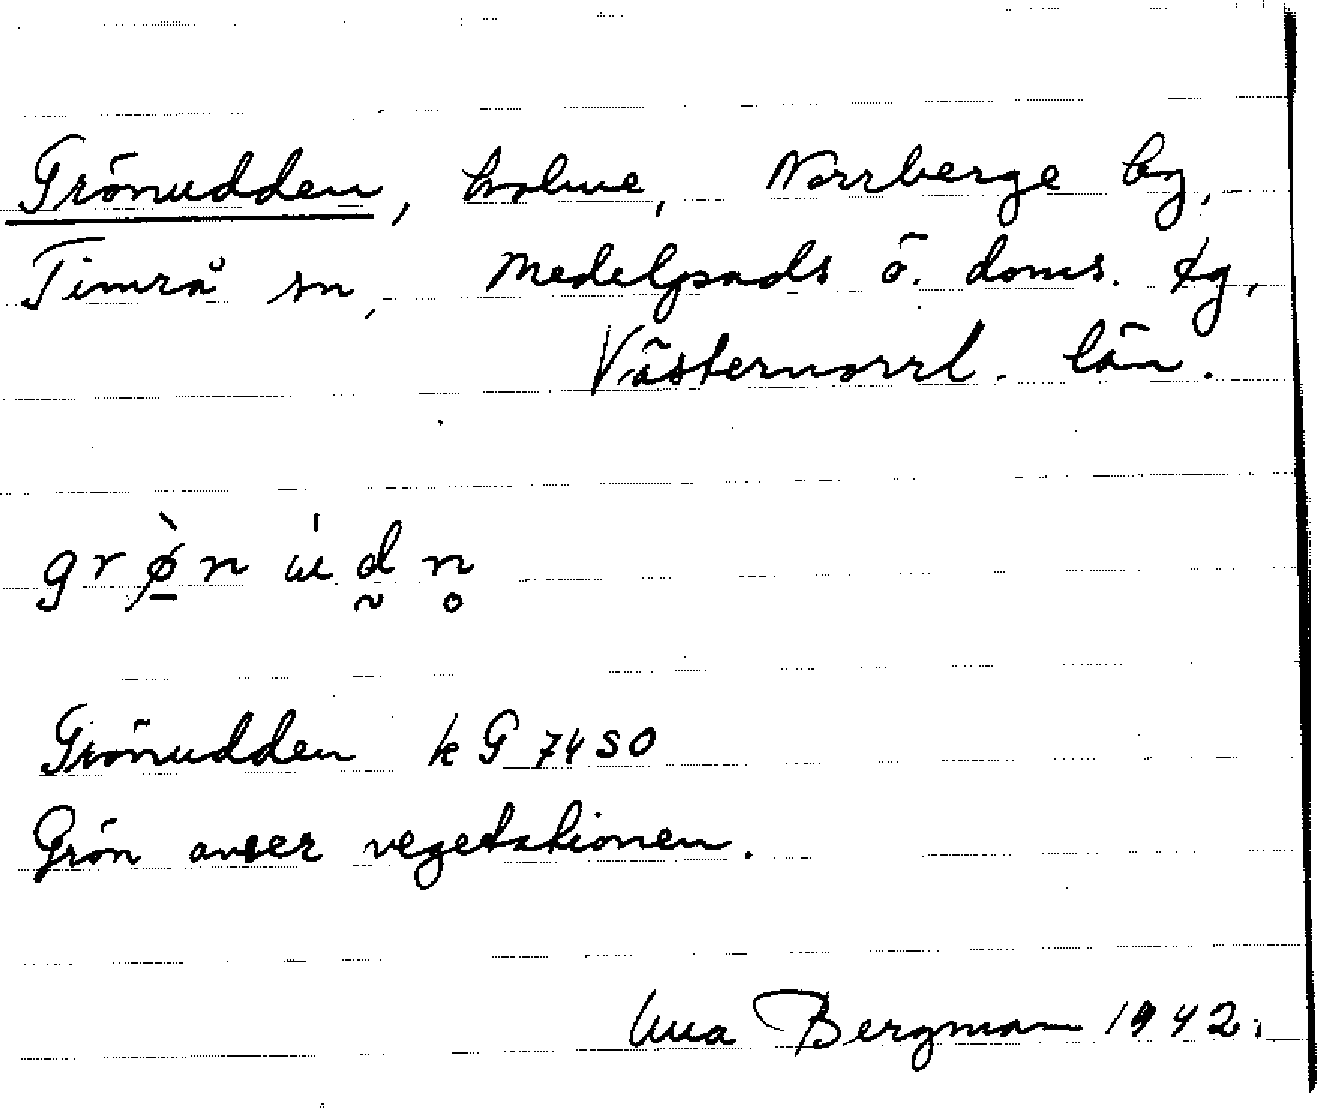 Grönudden, holme, Norrberge by,
Timrå sn, Medelpads ö. doms. tg,
Västernorrl. län.
grø̀n ùdn̥
Grönudden k G 7450
Grön avser vegetationen.
Bergman 1942.